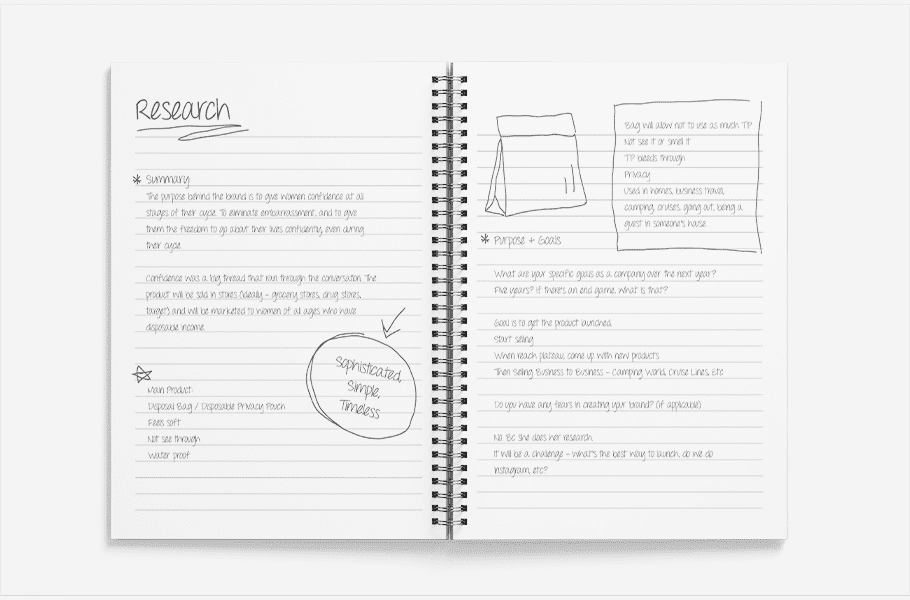 Research
* Summary
The purpose behind the brand is to give women confidence at all
stages of their cycle. To eliminate embarrassment, and to give
them the freedom to go about their lives confidently, even during
their cycle.
Confidence was a big thread that ran through the conversation. The
product will be sold in stores (ideally - grocery stores, drug stores,
target) and will be marketed to women of all ages who have
disposable income.
Sophisticated,
Simple,
Timeless
Main Product:
Disposal Bag / Disposable Privacy Pouch
Feels soft
Not see through
Water proof
Bag will allow not to use as much TP
Not see it or smell it
TP bleeds through
Privacy
Used in homes, business travel,
camping, cruises, going out, being a
guest in someone's house.
* Purpose + Goals
What are your specific goals as a company over the next year?
Five years? If there's an end game, what is that?
Goal is to get the product launched.
Start selling
When reach plateau, come up with new products
Then Selling Business to Business - Camping World, Cruise Lines, Etc
Do you have any fears in creating your brand? (if applicable)
No. Bc she does her research.
It will be a challenge - what's the best way to launch, do we do
Instagram, etc?